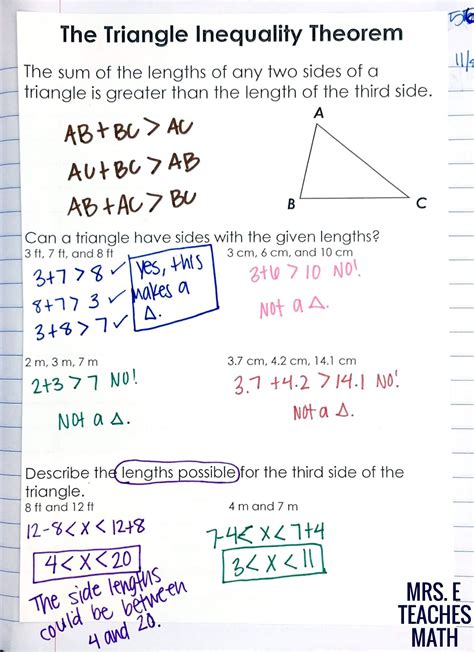 56
The Triangle Inequality Theorem
11/
The sum of the lengths of any two sides of a
triangle is greater than the length of the third side.
AB+BC > AC
AC+BC > AB
AB+AC > BC
A
B
C
Can a triangle have sides with the given lengths?
3 ft, 7 ft, and 8 ft
3+7 > 8 ✓
8+7 > 3 ✓
3+8 > 7 ✓
yes, this
makes a
Δ.
3 cm, 6 cm, and 10 cm
3+6 > 10 NO!
Not a Δ.
2 m, 3 m, 7 m
2+3 > 7 NO!
Not a Δ.
3.7 cm, 4.2 cm, 14.1 cm
3.7 +4.2 > 14.1 NO!
Not a Δ.
Describe the lengths possible for the third side of the
triangle.
8 ft and 12 ft
12-8 < x < 12+8
4 < x < 20
The side lengths
could be between
4 and 20.
4 m and 7 m
7-4 < x < 7+4
3 < x < 11
MRS. E
TEACHES
MATH